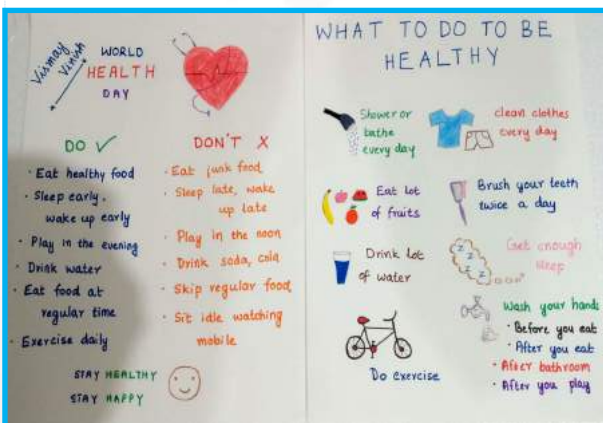 Vismay
Vinish
WORLD
HEALTH
DAY
DO ✓
· Eat healthy food
· Sleep early,
wake up early
· Play in the evening
· Drink water
· Eat food at
regular time
· Exercise daily
DON'T X
· Eat junk food
· Sleep late, wake
up late
· Play in the noon
· Drink soda, cola
· Skip regular food
· Sit idle watching
mobile
STAY HEALTHY
STAY HAPPY
WHAT TO DO TO BE
HEALTHY
Shower or
bathe
every day
clean clothes
every day
Eat lot
of fruits
Brush your teeth
twice a day
Drink lot
of water
Z Z Z Z
Get enough
sleep
Do exercise
Wash your hands
· Before you eat
· After you eat
· After bathroom
· After you play